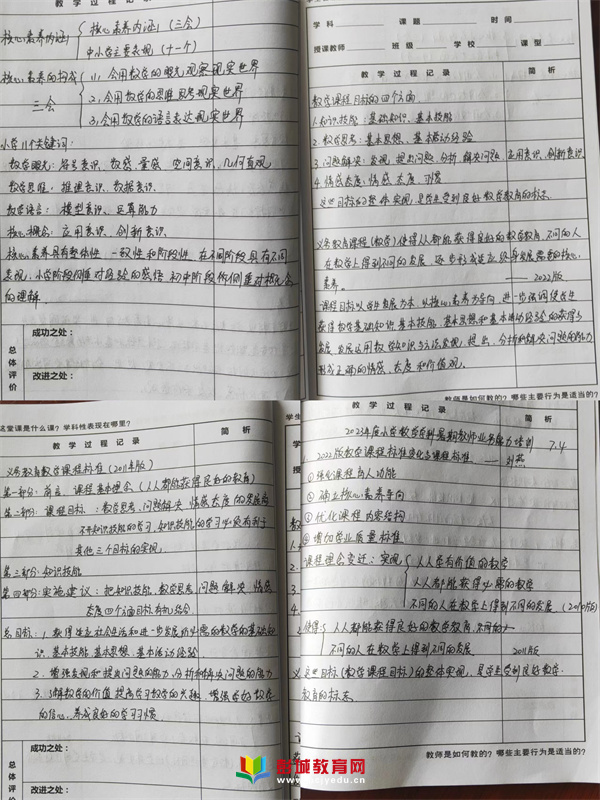 教 学 过 程 记 录
简 析
核心素养内涵
核心素养内涵（三会）
中小学主要表现（十一个）
核心素养的构成
三会
1，会用数学的眼光观察现实世界
2，会用数学的思维思考现实世界
3，会用数学的语言表达现实世界
小学11个关键词：
数学眼光：符号意识、数感、量感、空间意识、几何直观
数学思维：推理意识、数据意识
数学语言：模型意识、运算能力
核心概念：应用意识、创新意识
核心素养具有整体性、一致性和阶段性，在不同阶段具有不同
表现，小学阶段侧重对经验的感悟，初中阶段侧重对概念
的理解
总体评价
成功之处：
改进之处：
学科 课题 时间
授课教师 班级 学校 课型
教 学 过 程 记 录
简 析
数学课程目标的四个方面
1.知识技能：基础知识、基本技能
2.数学思考：基本思想、基本活动经验
3.问题解决：发现、提出问题、分析、解决问题、应用意识、创新意识
4.情感态度：情感、态度、习惯
这些目标的整体实现，是学生受到良好数学教育的标志
义务教育课程（数学）使得人人都能获得良好的数学教育，不同的人
在数学上得到不同的发展，逐步形成适应终身发展需要的核心
素养。 —— 2022版
课程目标以学生发展为本，以核心素养为导向，进一步强调使学生
获得数学基础知识、基本技能、基本思想和基本活动经验的获得与
发展，发展运用数学知识与方法发现、提出、分析和解决问题的能力
形成正确的情感、态度和价值观。
教师是如何教的？哪些主要行为是适当的？
这堂课是什么课？学科性表现在哪里？
教 学 过 程 记 录
简 析
义务教育数学课程标准（2011年版）
第一部分：前言、课程基本理念（人人都能获得良好的教育）
第二部分：课程目标：数学思考、问题解决、情感态度的发展离
不开知识技能的学习，知识技能的学习必须有利于
其他三个目标的实现。
第三部分：知识技能
第四部分：实施建议：把知识技能、数学思考、问题解决、情感
态度四个方面目标有机结合
总目标：1，获得适应社会生活和进一步发展所必需的数学的基础知
识、基本技能、基本思想、基本活动经验
2，增强发现和提出问题的能力、分析和解决问题的能力
3，了解数学的价值，提高学习数学的兴趣，增强学好数学
的信心，养成良好的学习习惯
总体评价
成功之处：
改进之处：
教 学 过 程 记 录
简 析
2023年度小学数学学科暑期教师业务能力培训 7.4
1. 2022版数学课程标准变化与课程标准 ——
① 强化课程育人功能
② 确立核心素养导向
③ 优化课程内容结构
④ 增加学业质量标准
课程理念变迁：实现
人人学有价值的数学
人人都能获得必需的数学
不同的人在数学上得到不同的发展（2001版）
使得：人人都能获得良好的数学教育，不同的人
不同的人在数学上得到不同的发展 2011版
这些目标（数学课程目标）的整体实现，是学生受到良好数学
教育的标志。
教师是如何教的？哪些主要行为是适当的？
彭城教育网